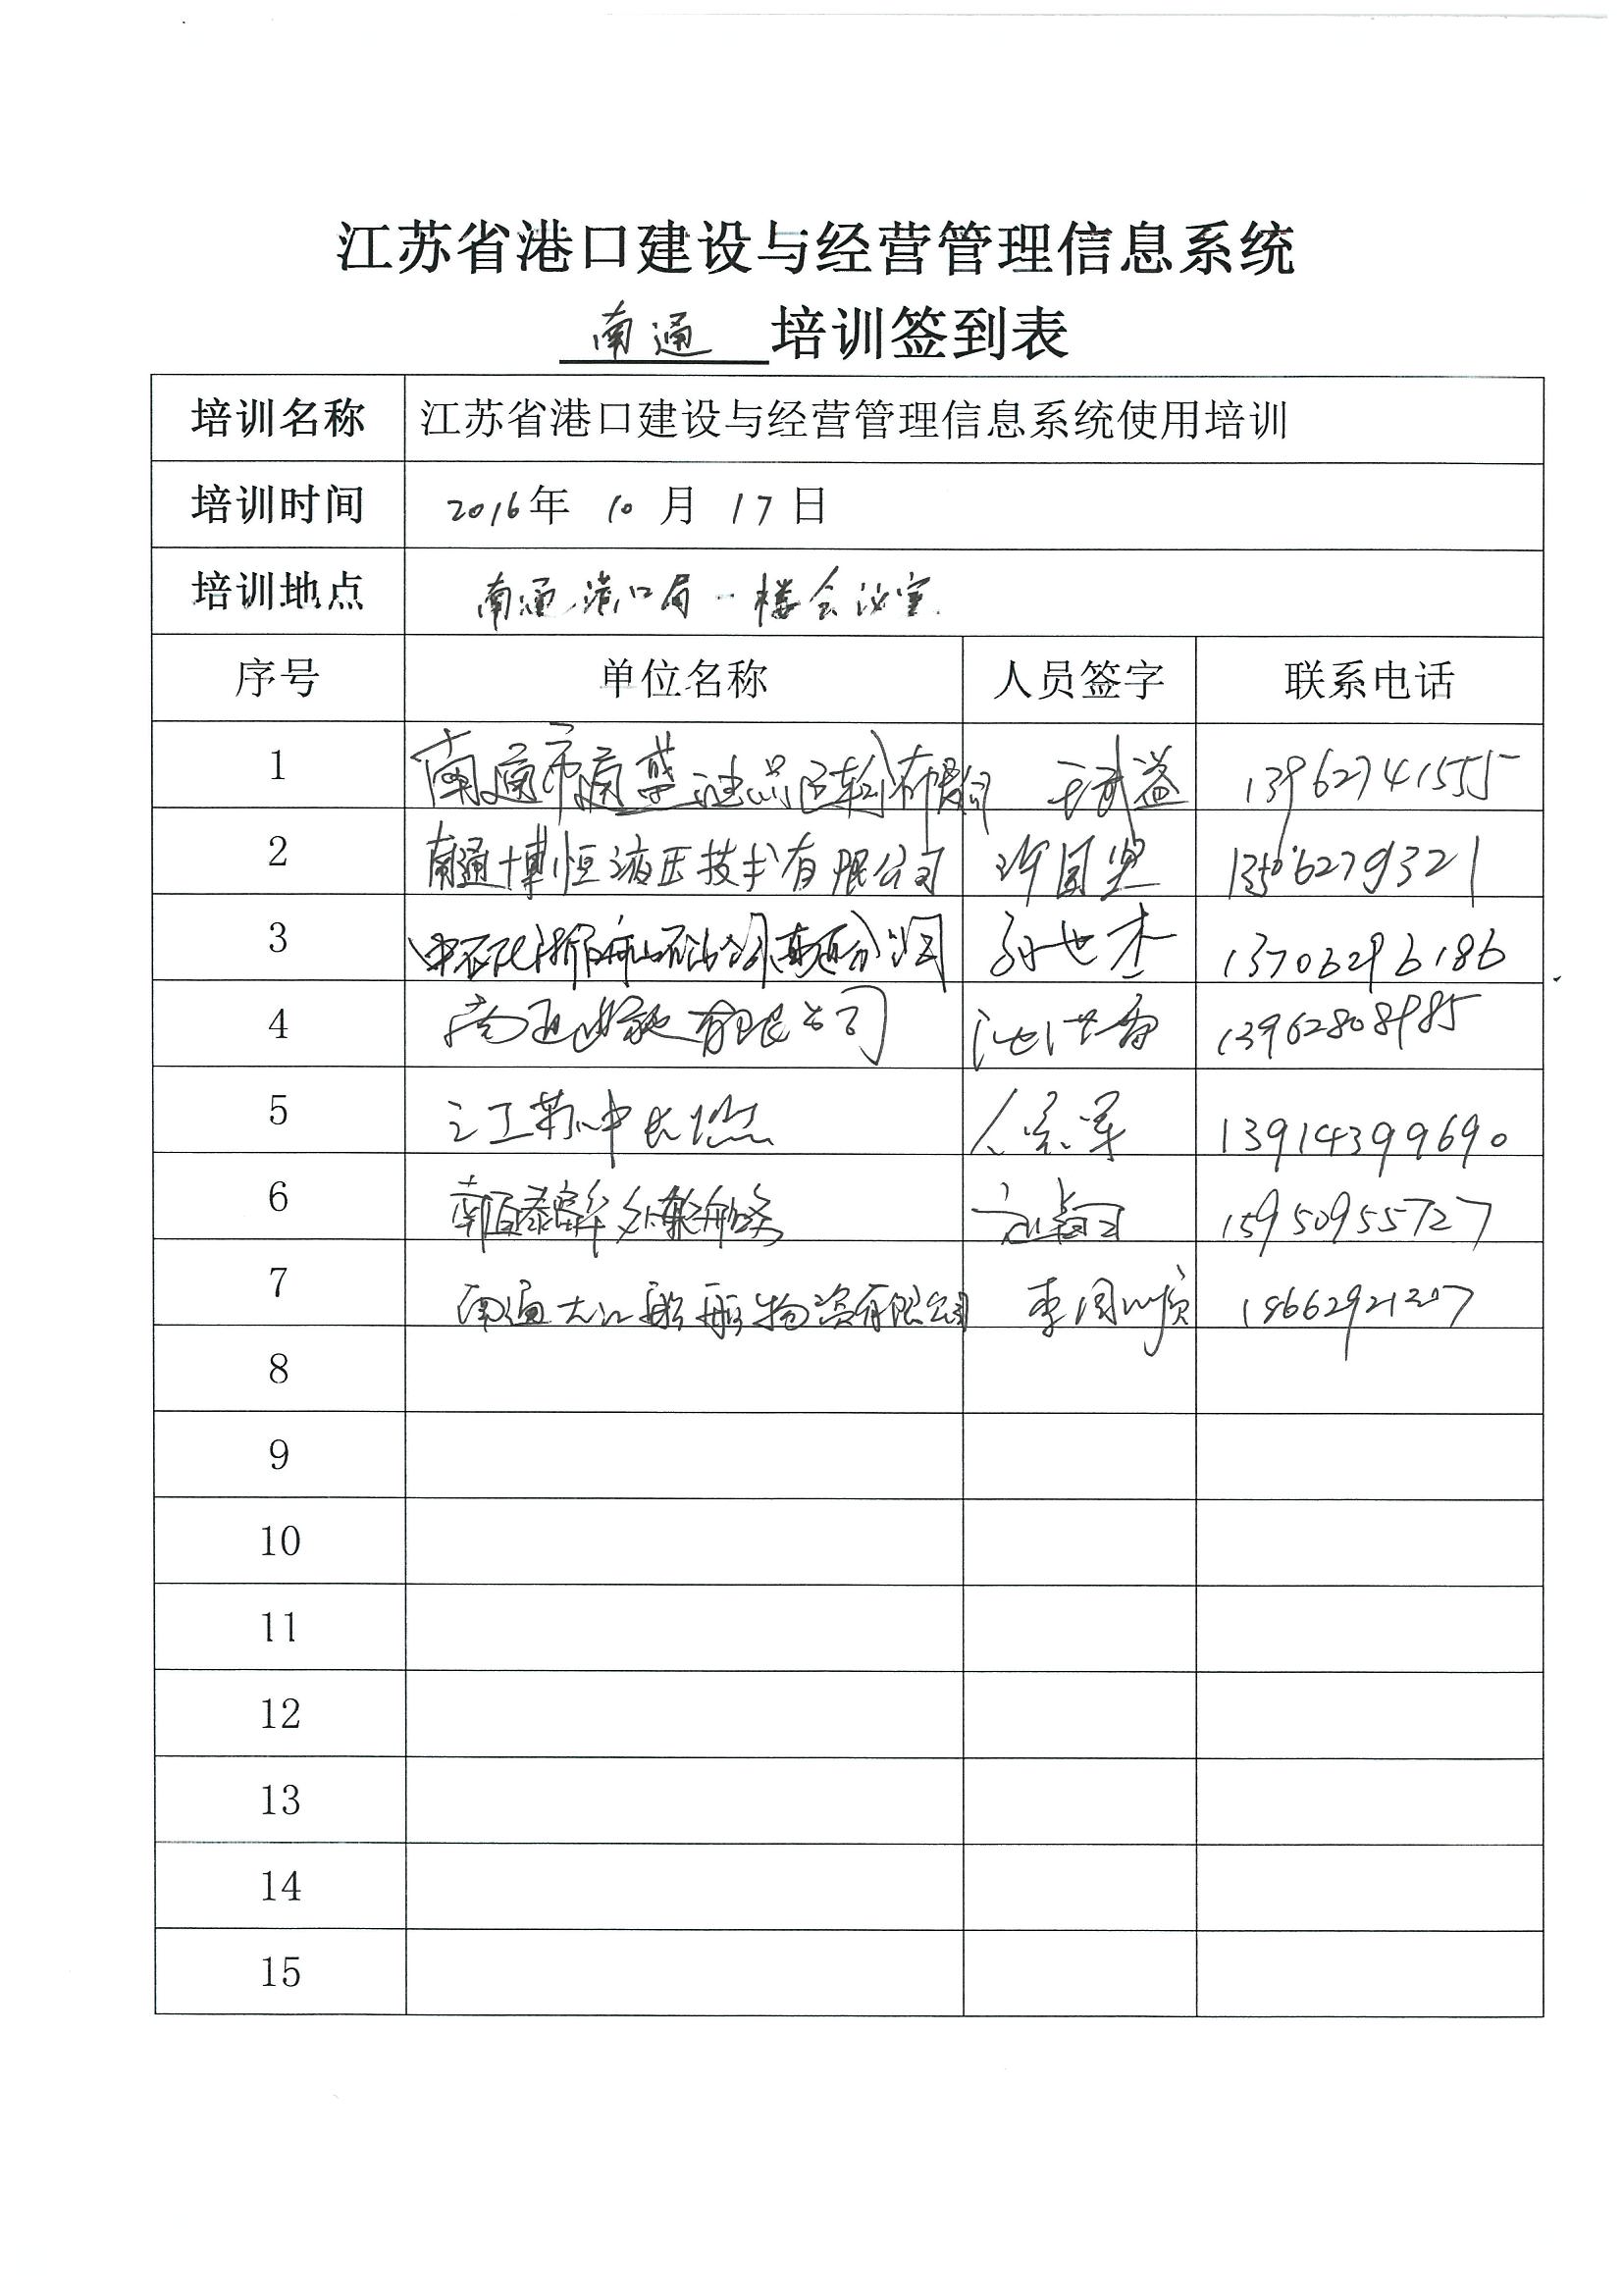 江苏省港口建设与经营管理信息系统
南通 培训签到表
培训名称 江苏省港口建设与经营管理信息系统使用培训
培训时间 2016年 10 月 17 日
培训地点 南通港口局一楼会议室
序号 单位名称 人员签字 联系电话
1 南通市通 13962741555
2 南通博恒液压技术有限公司 许国坚 13506279321
3 孙世杰 13706296186
4 南通 有限公司 13962808985
5 江苏中长燃 军 13914399690
6 南通 15950955727
7 南通大江船舶物资有限公司 李国 18662921207
8
9
10
11
12
13
14
15